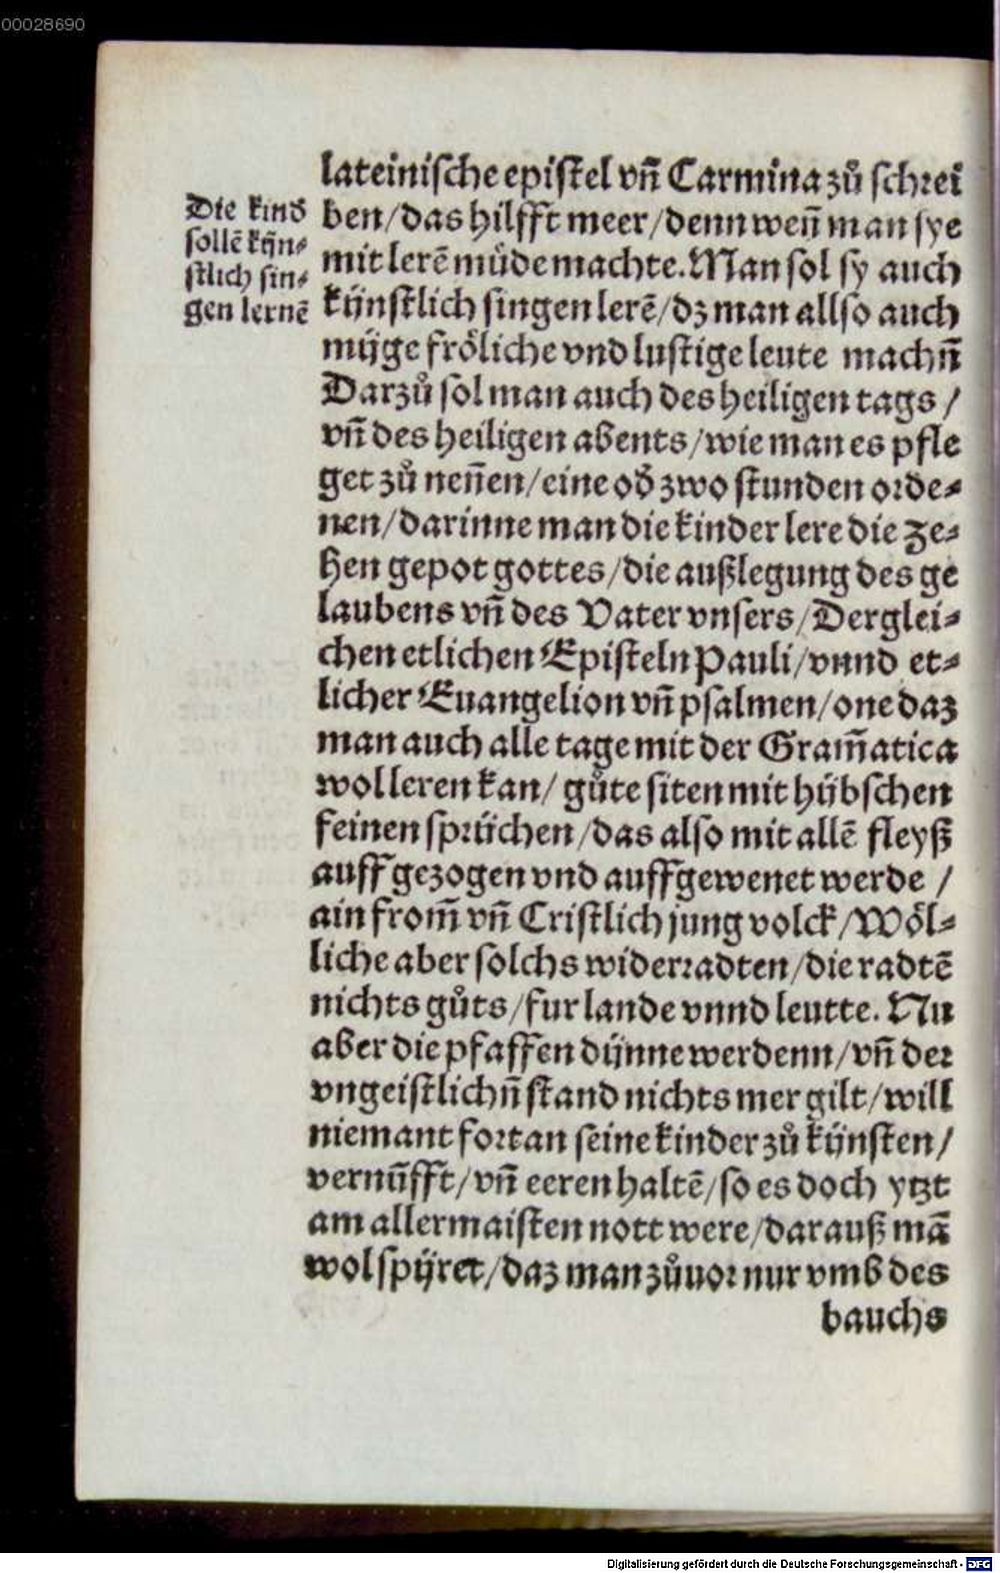 00028690
Die kind
sollē kŭn⸗
stlich sin⸗
gen lernē
lateinische epistel vn̄ Carmina zů schrei
ben/das hilfft meer/denn wen̄ man sye
mit lerē müde machte. Man sol sy auch
kŭnstlich singen lerē/dz man allso auch
mŭge fröliche vnd lustige leute machn̄
Darzů sol man auch des heiligen tags/
vn̄ des heiligen abents/wie man es pfle
get zů nen̄en/eine od̄ zwo stunden orde⸗
nen/darinne man die kinder lere die ze⸗
hen gepot gottes/die außlegung des ge
laubens vn̄ des Vater vnsers/Derglei⸗
chen etlichen Episteln Pauli/vnnd et⸗
licher Euangelion vn̄ psalmen/one daz
man auch alle tage mit der Gram̄atica
wol leren kan/ gůte siten mit hŭbschen
feinen sprŭchen/das also mit allē fleyß
auff gezogen vnd auffgewenet werde /
ain from̄ vn̄ Cristlich jung volck/Wöl⸗
liche aber solchs widerradten/die radtē
nichts gůts/fur lande vnnd leutte. Nu
aber die pfaffen dŭnne werdenn/vn̄ der
vngeistlichn̄ stand nichts mer gilt/will
niemant fortan seine kinder zů kŭnsten/
vernūfft/vn̄ eeren haltē/so es doch ytzt
am allermaisten nott were/darauß mā
wol spŭret/daz man zůuor nur vmb des
bauchs
Digitalisierung gefördert durch die Deutsche Forschungsgemeinschaft - DFG